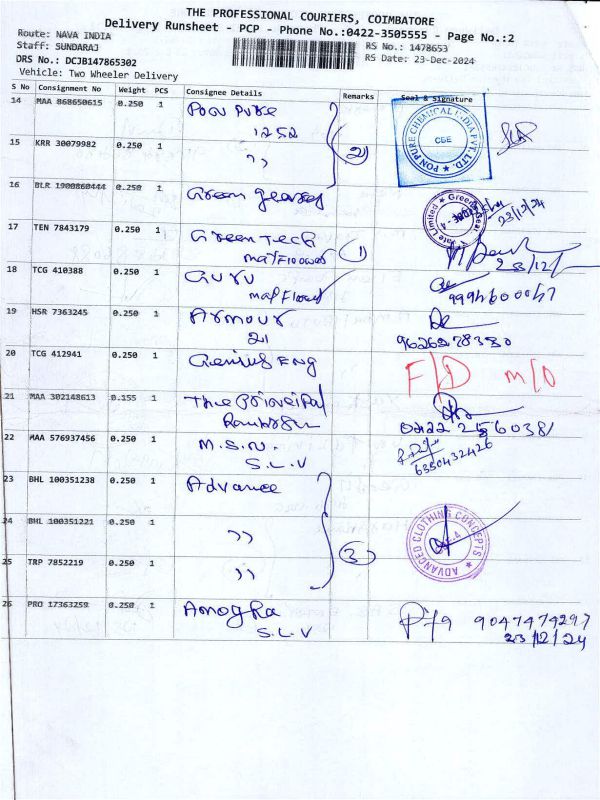 THE PROFESSIONAL COURIERS, COIMBATORE
Delivery Runsheet - PCP - Phone No.:0422-3505555 - Page No.:2
Route: NAVA INDIA
Staff: SUNDARAJ
RS No.: 1478653
DRS No.: DCJB147865302
RS Date: 23-Dec-2024
Vehicle: Two Wheeler Delivery
S No Consignment No Weight PCS Consignee Details Remarks Seal & Signature
14 MAA 868650615 0.250 1 Pon Pure
1252
PON PURE CHEMICAL INDIA PVT. LTD. CBE
15 KRR 30079982 0.250 1 ,, 2
16 BLR 1900860444 0.250 1 Green gears
23/12/24
17 TEN 7843179 0.250 1 Green Tech 1
mayflower
23/12/
18 TCG 410388 0.250 1 Guru
mayflower
19 HSR 7363245 0.250 1 Armour
21
9626278380
20 TCG 412941 0.250 1 Genius ENG F/D M/O
21 MAA 302148613 0.155 1 The Principal
22 MAA 576937456 0.250 1 M.S.N.
S.L.V
6380432426
23 BHL 100351238 0.250 1 Advance
24 BHL 100351221 0.250 1 ,,
ADVANCED CLOTHING CONCEPTS
25 TRP 7852219 0.250 1 ,, 3
26 PRO 17363259 0.250 1 Amogha
S.L.V
9047474297
23/12/24